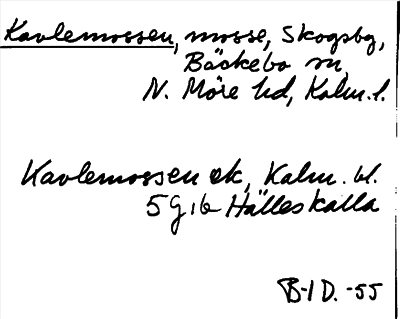 Kavlemossen, mosse, Skogsby,
Bäckebo sn,
N. Möre hd, Kalm. l.
Kavlemossen ek, Kalm. bl.
5 G i b Hälleskalla
B-I D. -55